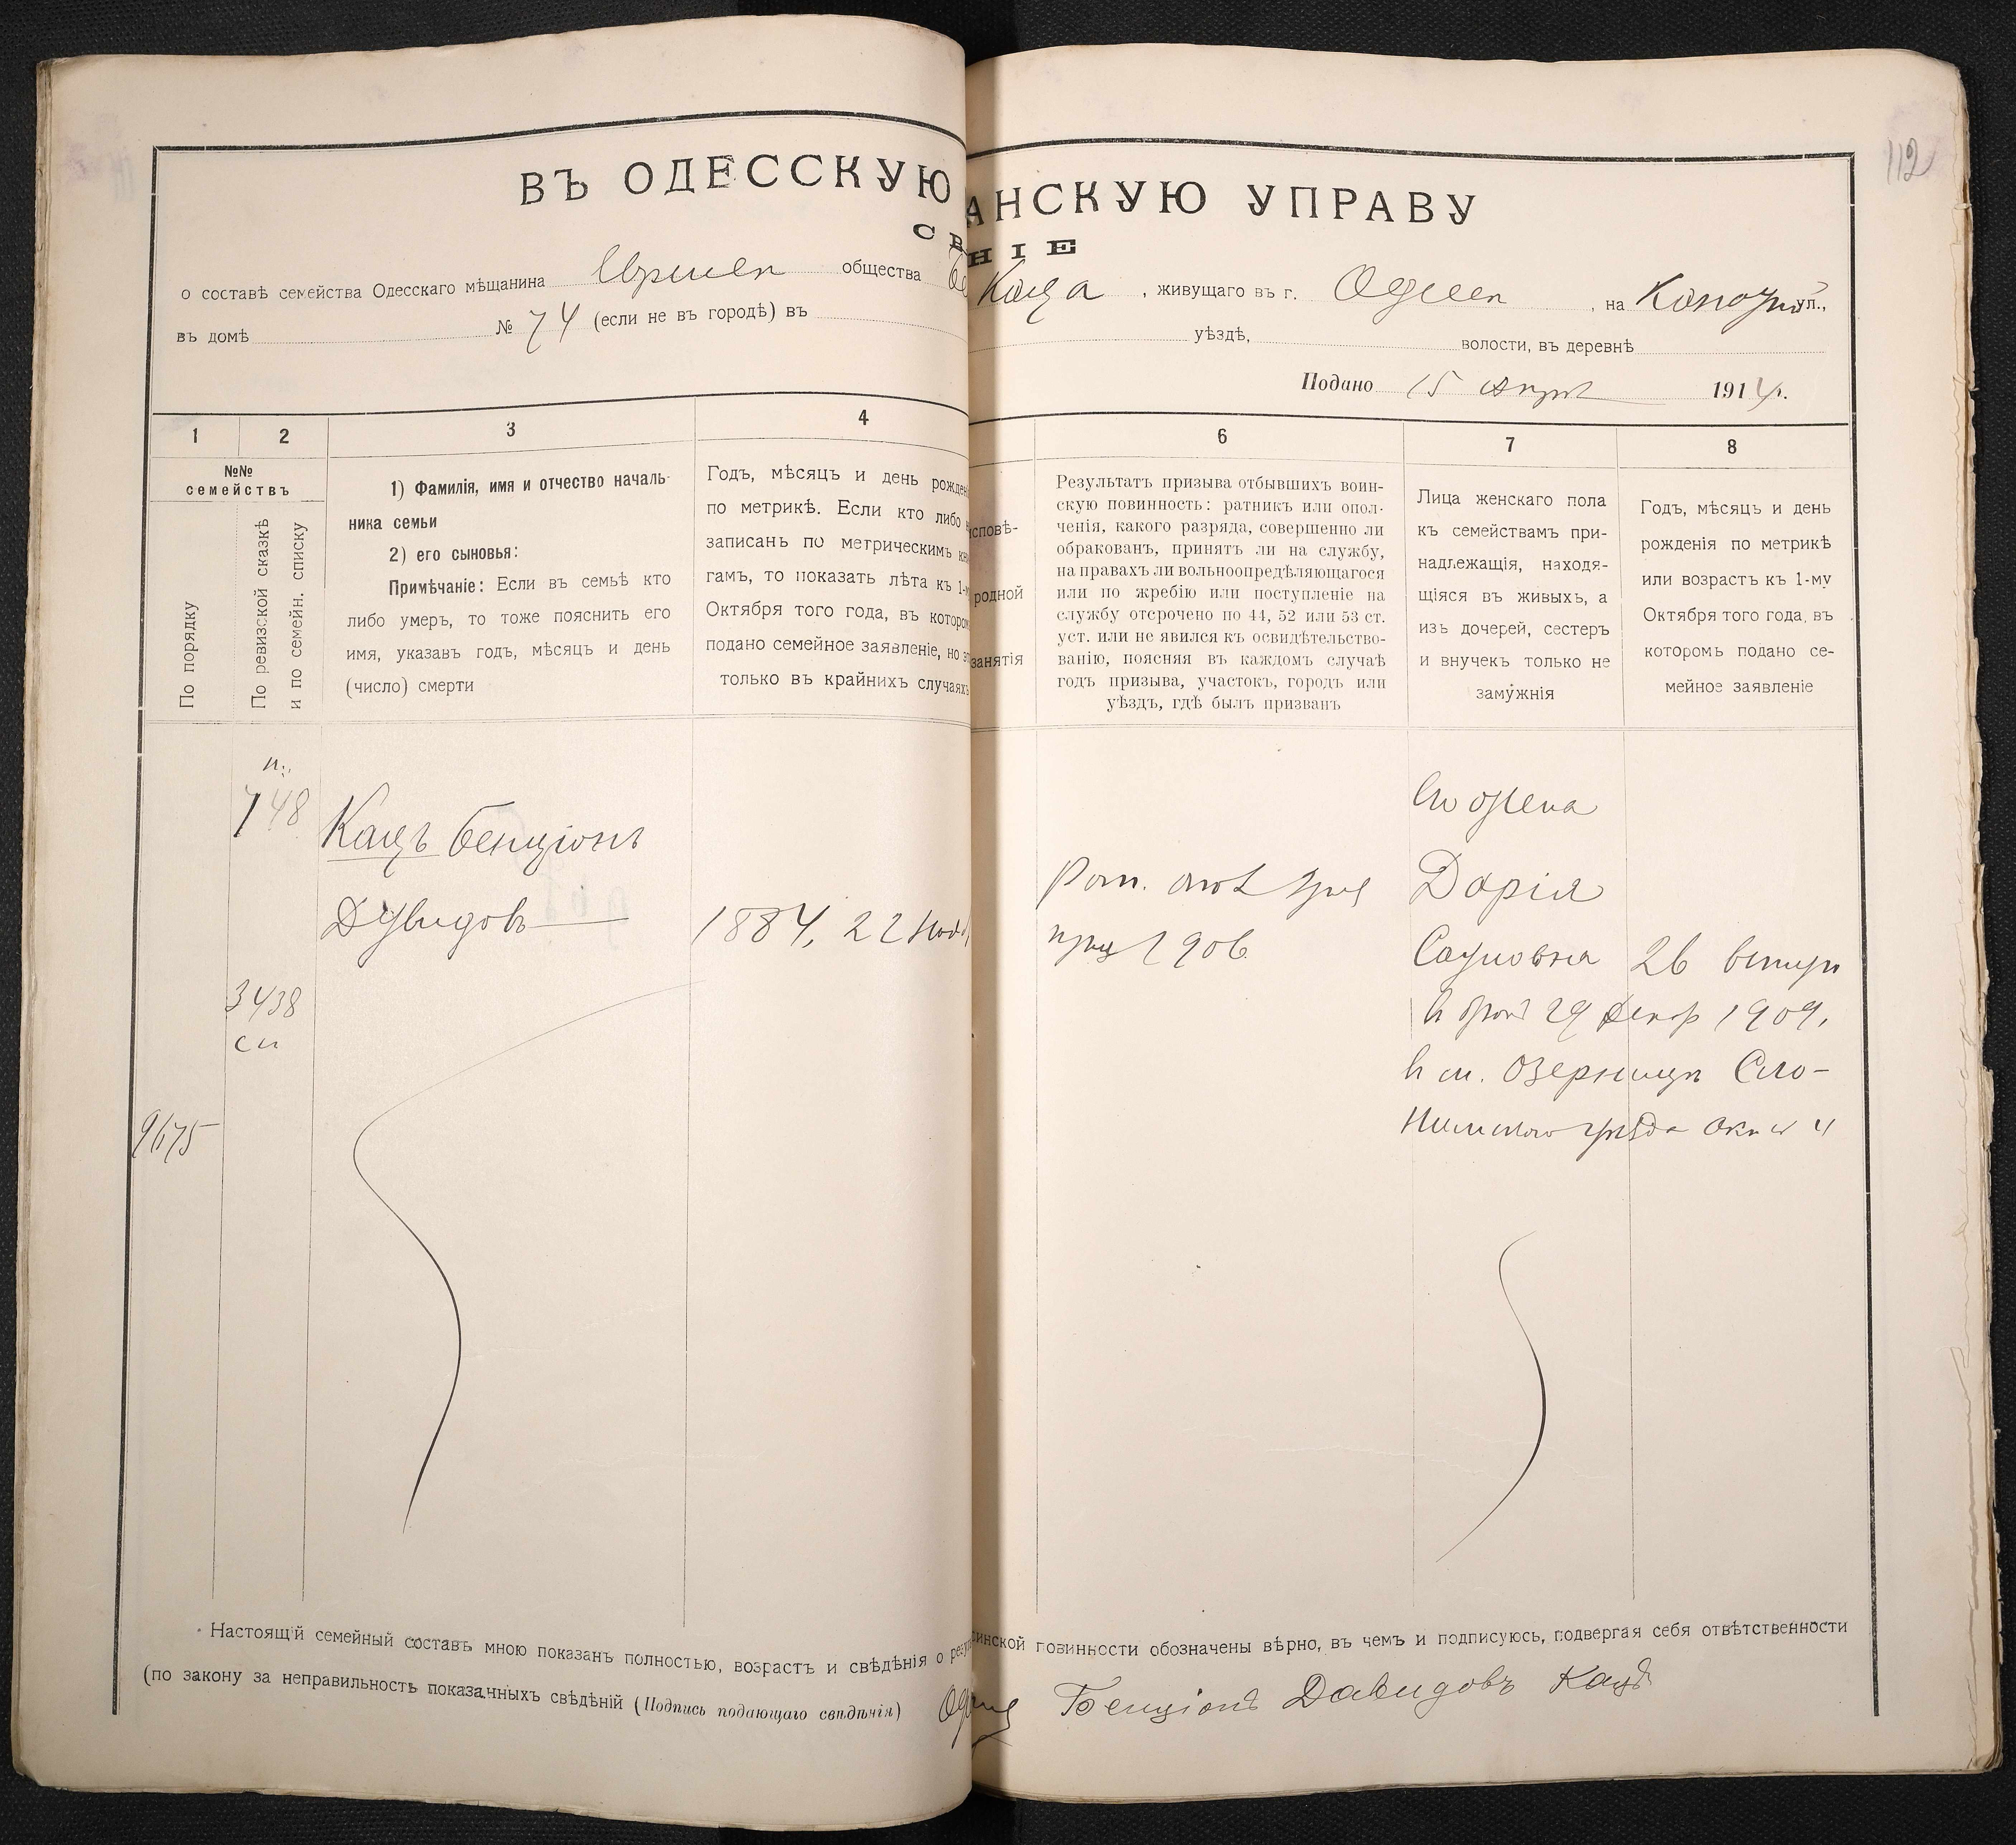 112
ВЪ ОДЕССКУЮ АНСКУЮ УПРАВУ
СВ НІЕ
о составѣ семейства Одесскаго мѣщанина общества Каца, живущаго въ г. Одессѣ, на ул.,
въ домѣ № 74 (если не въ городѣ) въ уѣздѣ, волости, въ деревнѣ
Подано 15 1914 г.
1 2 3 4 6 7 8
№№
семействъ
По порядку
По ревизской сказкѣ
и по семейн. списку
1) Фамилія, имя и отчество началь-
ника семьи
2) его сыновья:
Примѣчаніе: Если въ семьѣ кто
либо умеръ, то тоже пояснить его
имя, указавъ годъ, мѣсяцъ и день
(число) смерти
Годъ, мѣсяцъ и день рожден
по метрикѣ. Если кто либо
записанъ по метрическимъ кн
гамъ, то показать лѣта къ 1-м
Октября того года, въ котором
подано семейное заявленіе, но э
только въ крайнихъ случаяхъ
исповѣ-
родной
занятія
Результатъ призыва отбывшихъ воин-
скую повинность: ратникъ или опол-
ченія, какого разряда, совершенно ли
обракованъ, принятъ ли на службу,
на правахъ ли вольноопредѣляющагося
или по жребію или поступленіе на
службу отсрочено по 44, 52 или 53 ст.
уст. или не явился къ освидѣтельство-
ванію, поясняя въ каждомъ случаѣ
годъ призыва, участокъ, городъ или
уѣздъ, гдѣ былъ призванъ
Лица женскаго пола
къ семействамъ при-
надлежащія, находя-
щіяся въ живыхъ, а
изъ дочерей, сестеръ
и внучекъ только не
замужнія
Годъ, мѣсяцъ и день
рожденія по метрикѣ
или возрастъ къ 1-му
Октября того года, въ
которомъ подано се-
мейное заявленіе
748
Кацъ Бенціонъ
Дувидовъ
1884, 22
1906
3438
сп
9675
Его жена
Дарія
Сауловна 26
29 Декаб 1909,
въ м. Озерницѣ Сло-
нимскаго уѣзда
Настоящій семейный составъ мною показанъ полностью, возрастъ и свѣдѣнія о резу инской повинности обозначены вѣрно, въ чемъ и подписуюсь, подвергая себя отвѣтственности
(по закону за неправильность показанныхъ свѣдѣній (Подпись подающаго свѣдѣнія) Бенціонъ Давидовъ Кацъ